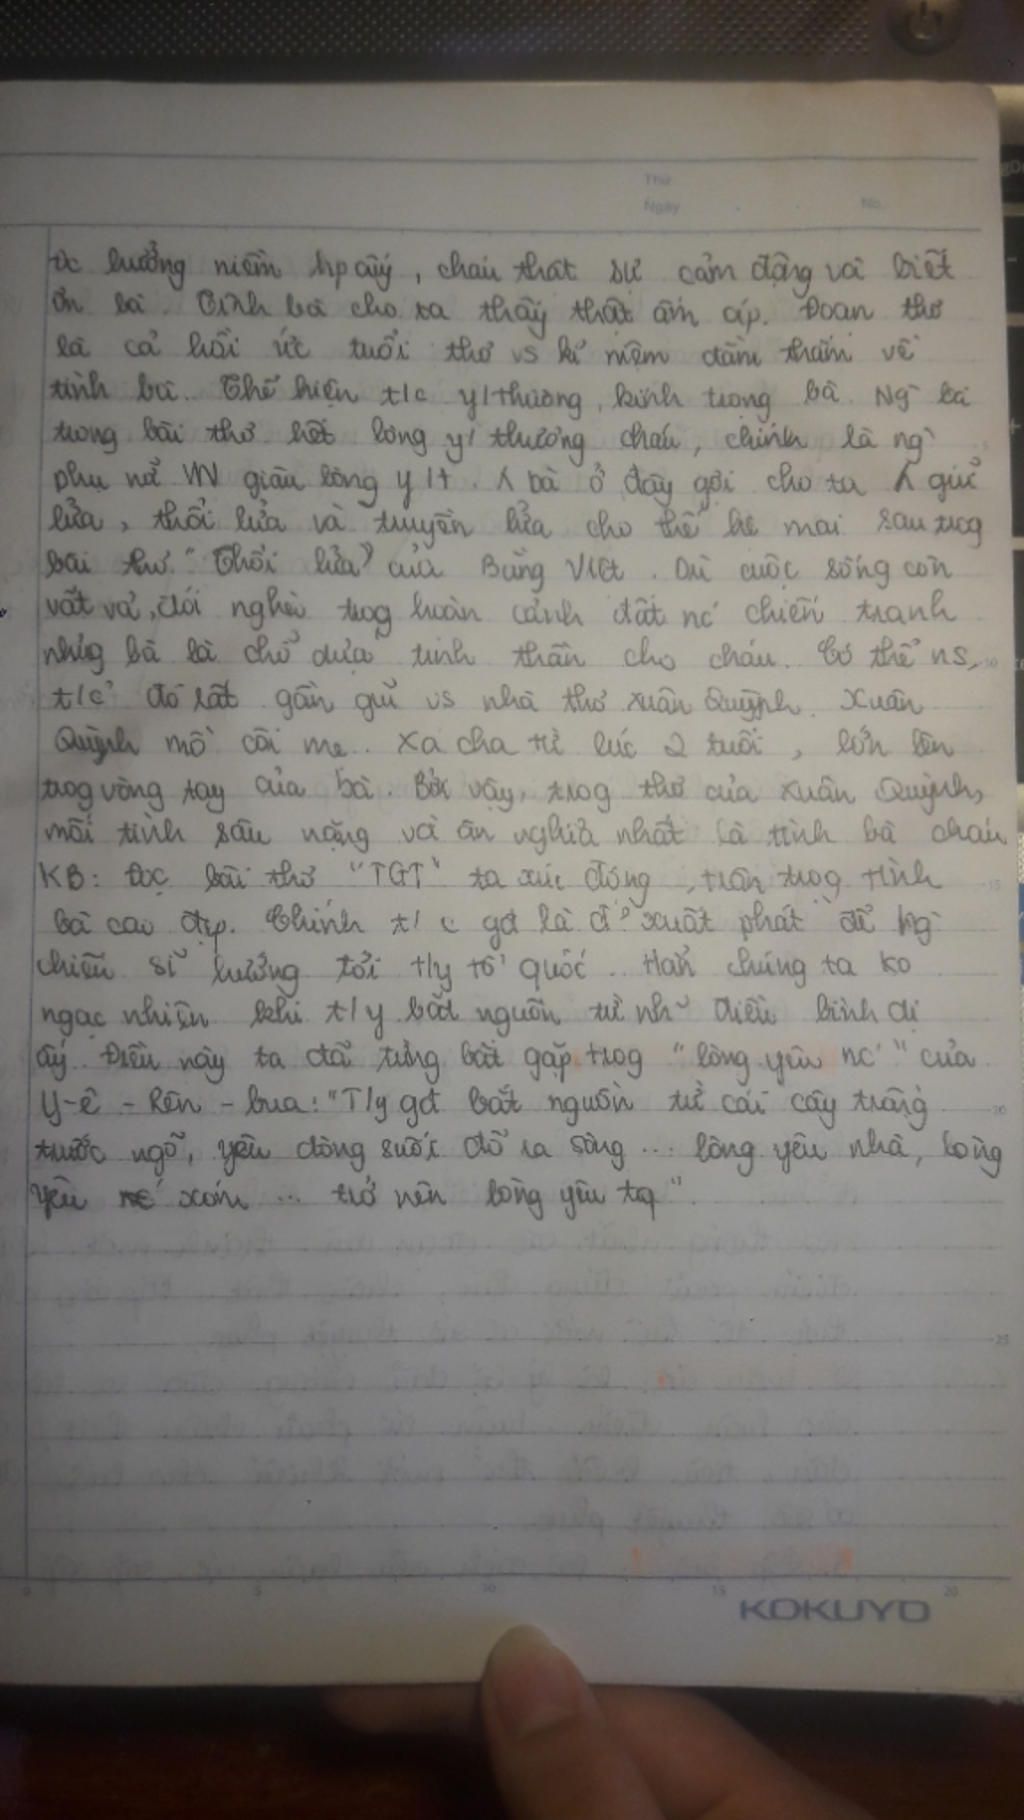 Thứ
Ngày No.
đc hưởng niềm hp ấy, cháu thật sự cảm động và biết
ơn bà. Tình bà cho ta thấy thật ấm áp. Đoạn thơ
là cả hồi ức tuổi thơ vs kỉ niệm đằm thắm về
tình bà. Thể hiện t/c y/thương, kính trọng bà. Ng̀ bà
trong bài thơ hết lòng y/thương cháu, chính là ng̀
phụ nữ VN giàu lòng y/t. ʌ bà ở đây gợi cho ta ʌ giữ
lửa, thổi lửa và truyền lửa cho thế hệ mai sau trog
bài thơ "Thổi lửa" của Bằng Việt. Dù cuộc sống còn
vất vả, đói nghèo trog hoàn cảnh đất nc' chiến tranh
nhưg bà là chỗ dựa tinh thần cho cháu. Có thể ns,
t/c' đó rất gần gũi vs nhà thơ Xuân Quỳnh. Xuân
Quỳnh mồ côi mẹ. Xa cha từ lúc 2 tuổi, lớn lên
trog vòng tay của bà. Bởi vậy, trog thơ của Xuân Quỳnh,
mối tình sâu nặng và ân nghĩa nhất là tình bà cháu
KB: Đọc bài thơ "TGT" ta xúc động, trân trog tình
bà cao đẹp. Chính t/c gđ là đ' xuất phát để ng̀
chiến sĩ hướng tới t/y tổ quốc. Hẳn chúng ta ko
ngạc nhiên khi t/y bắt nguồn từ nh~ điều bình dị
ấy. Điều này ta đã từng bắt gặp trog "lòng yêu nc'" của
Y-ê-Rên-bua: "T/y gđ bắt nguồn từ cái cây trồng
trước ngõ, yêu dòng suối đổ ra sông ... lòng yêu nhà, lòng
yêu xóm ... trở nên lòng yêu tq".
KOKUYO